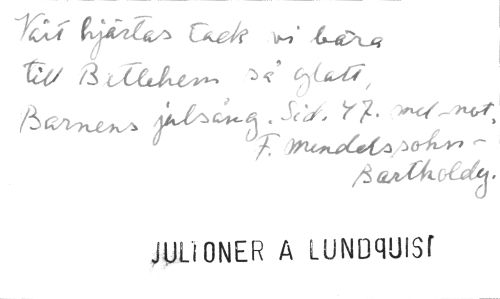 Vårt hjärtas tack vi bära
till Betlehem så glatt,
Barnens julsång. Sid. 47. mel-not.
F. Mendelssohn-
Bartholdy.
JULTONER A LUNDQUIST